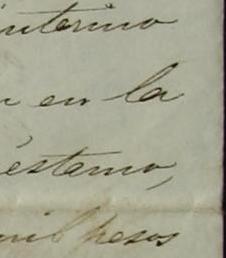 interino
n en la
éstamo,
mil pesos